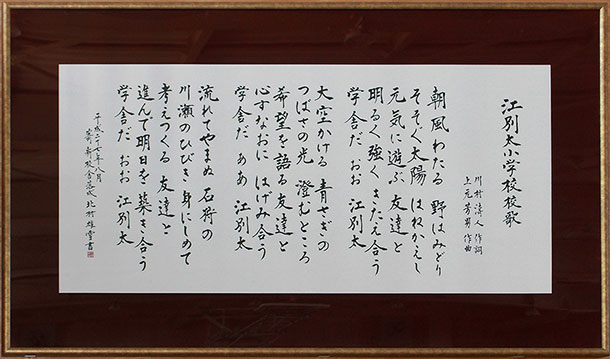 江別太小学校校歌
川村濤人 作詞
上元芳男 作曲
朝風わたる 野はみどり
そそぐ太陽 はねかえし
元気に遊ぶ 友達と
明るく強く きたえ合う
学舎だ おお 江別太
大空かける 青さぎの
つばさの光 澄むところ
希望を語る 友達と
心すなおに はげみ合う
学舎だ ああ 江別太
流れてやまぬ 石狩の
川瀬のひびき 身にしめて
考えつくる 友達と
進んで明日を 築き合う
学舎だ おお 江別太
平成二十七年八月
新校舎落成 北村雄雪書